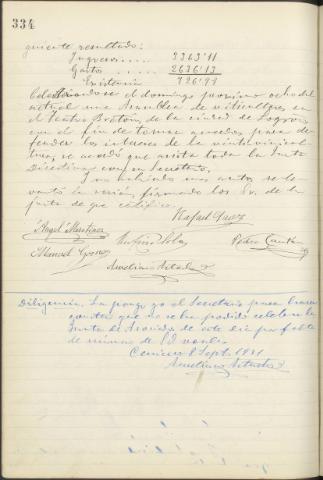 334
guiente resultado:
Ingresos..... 3363'11
Gastos ..... 2636'13
Existencia 726'98
Celebrándose el domingo proximo ocho del
actual una Asamblea de viticultores en
el Teatro Bretón, de la ciudad de Logroño
con el fin de tomar acuerdos para de-
fender los intereses de la vitivinicul-
tura, se acordó que asista toda la Junta
Directiva con su Secretario.
Y no habiendo mas asuntos se le-
vantó la sesión, firmando los Sres. de la
Junta de que certifico.
Rafael
Angel Martinez Rufino Pedro
Manuel
Aureliano
Diligencia. La pongo yo el Secretario para hacer
constar que no se ha podido celebrar la
Junta de de este dia por falta
de número de Sres. vocales.
Cenicero 8 Sept. 1931
Aureliano